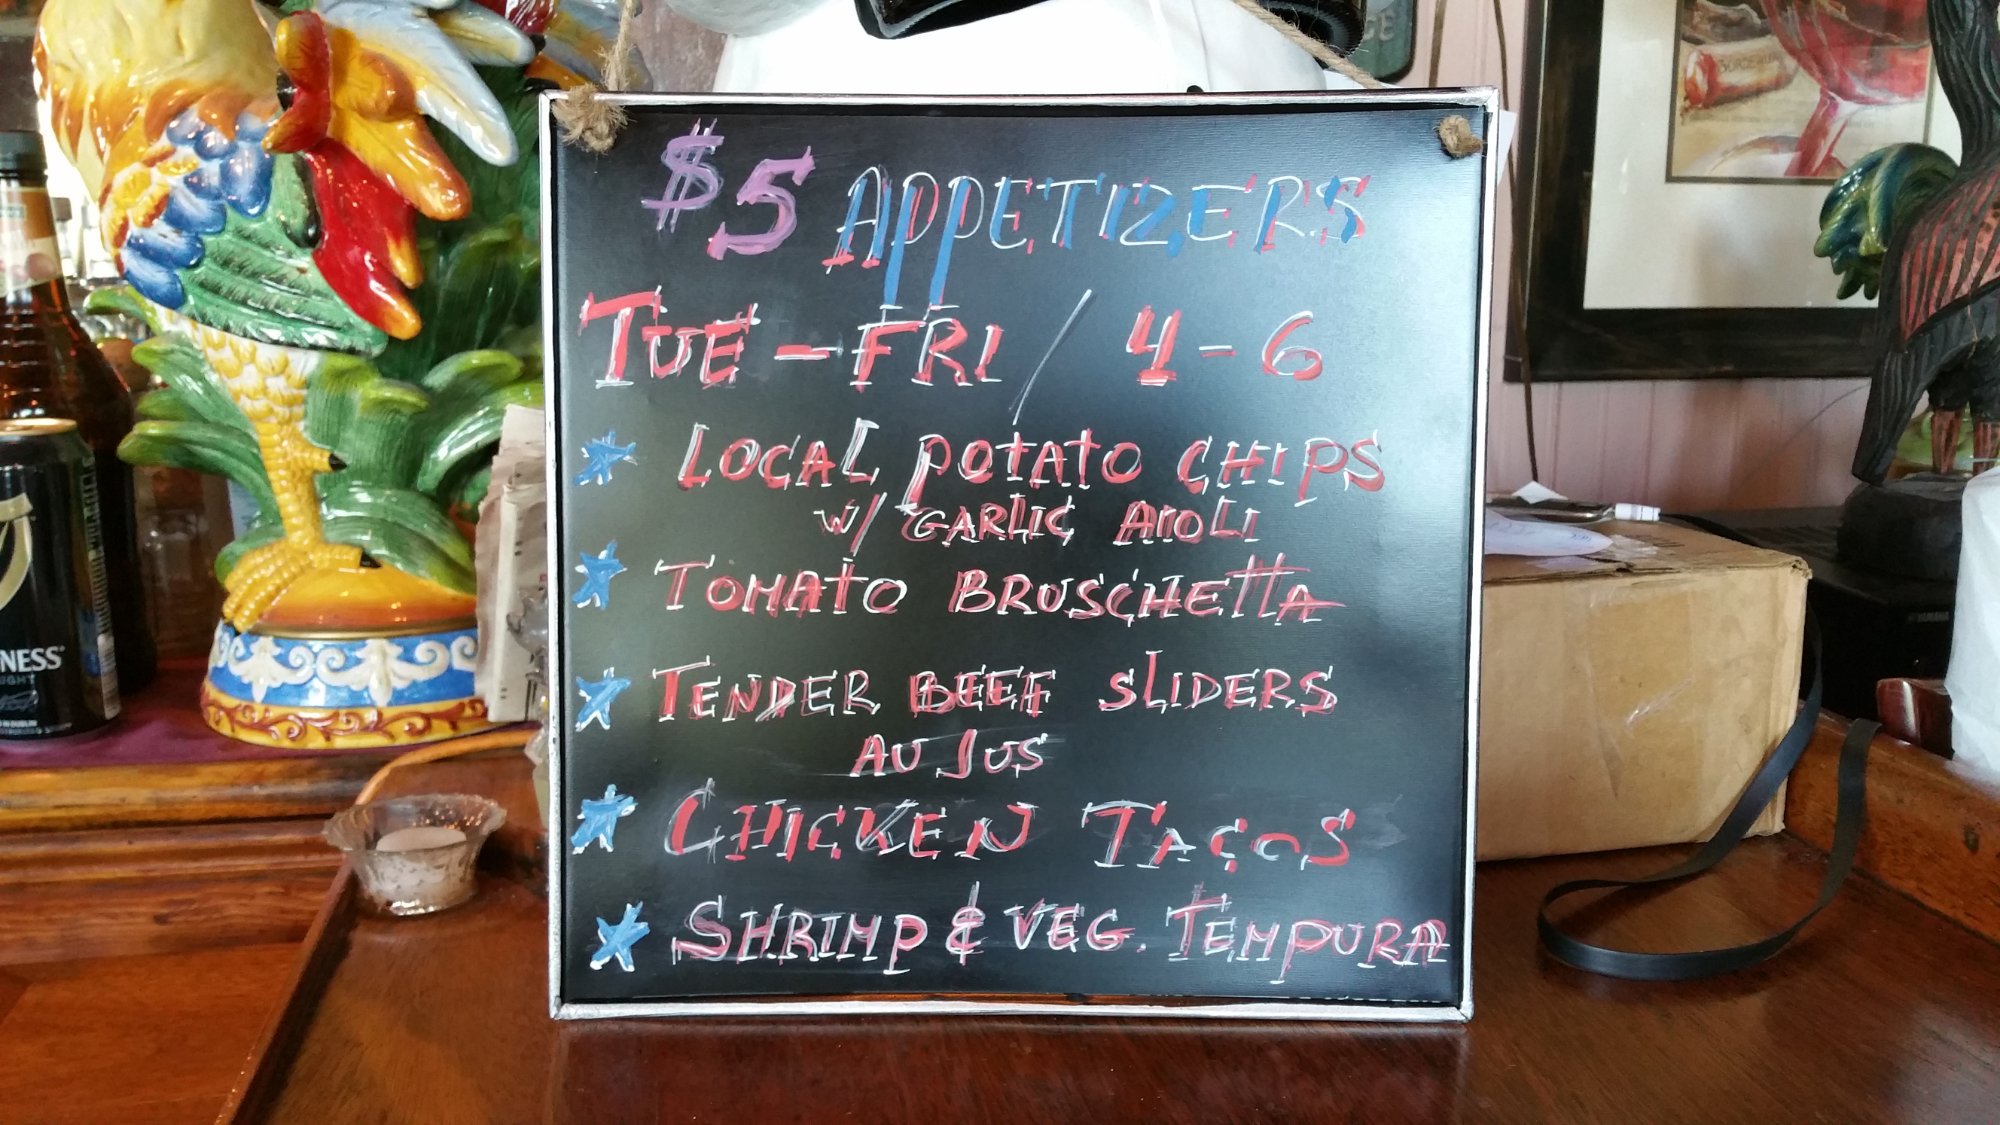 $5 APPETIZERS
TUE - FRI / 4 - 6
LOCAL POTATO CHIPS
W/ GARLIC AIOLI
TOMATO BRUSCHETTA
TENDER BEEF SLIDERS
AU JUS
CHICKEN TACOS
SHRIMP & VEG. TEMPURA
BORDEAUX
YAMAHA